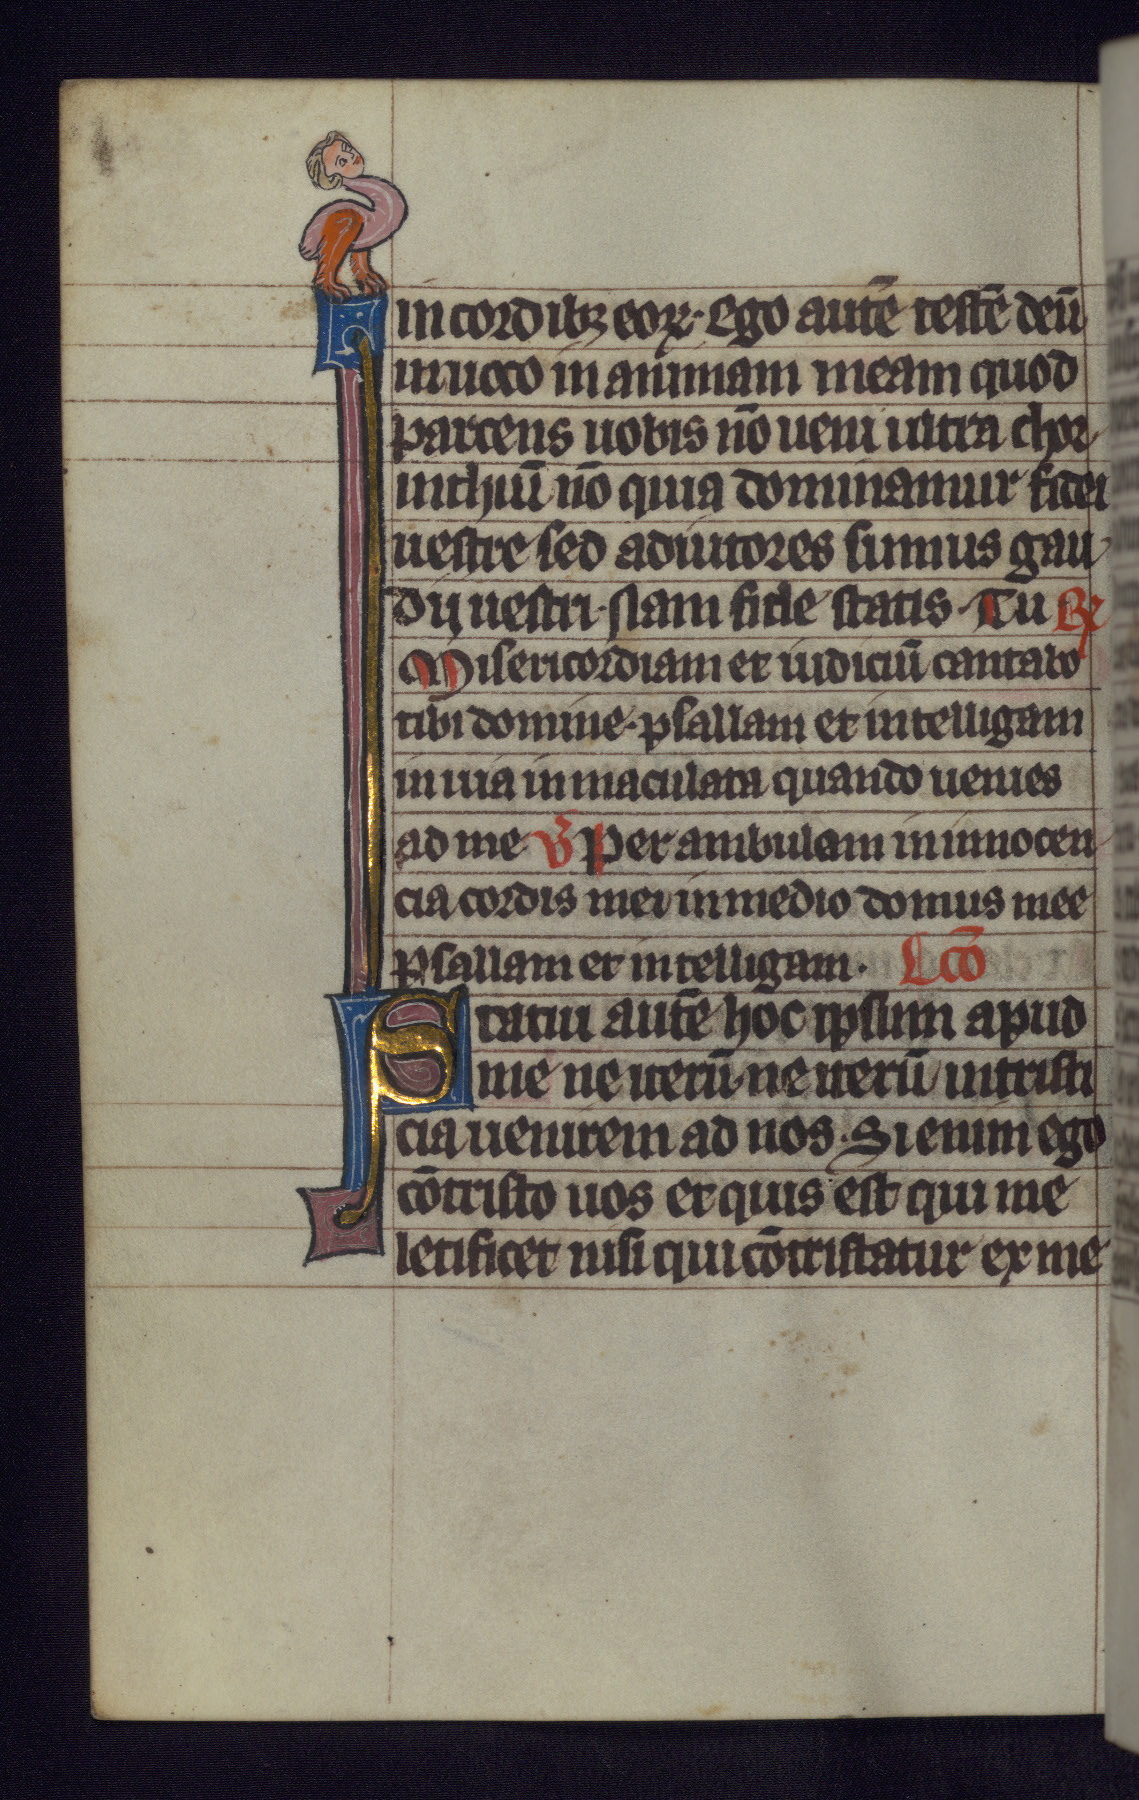 in cordibꝫ eoꝝ. Ego autē testē deū
inuoco in animam meam quod
parcens uobis nō ueni ultra chor
inthiū nō quia dominamur fidei
uestre sed adiutores sumus gau
dij uestri. Nam fide statis. Tu ℟
Misericordiam et iudiciū cantabo
tibi domine. psallam et intelligam
in uia inmaculata quando uenies
ad me ℣ Per ambulam in innocen
cia cordis mei in medio domus mee
psallam et intelligam. Lc̄o
Statui autē hoc ipsum apud
me ne uerū ne uerū intristi
cia uenirem ad uos. Si enim ego
cōtristo uos et quis est qui me
letificet nisi qui cōtristatur ex me